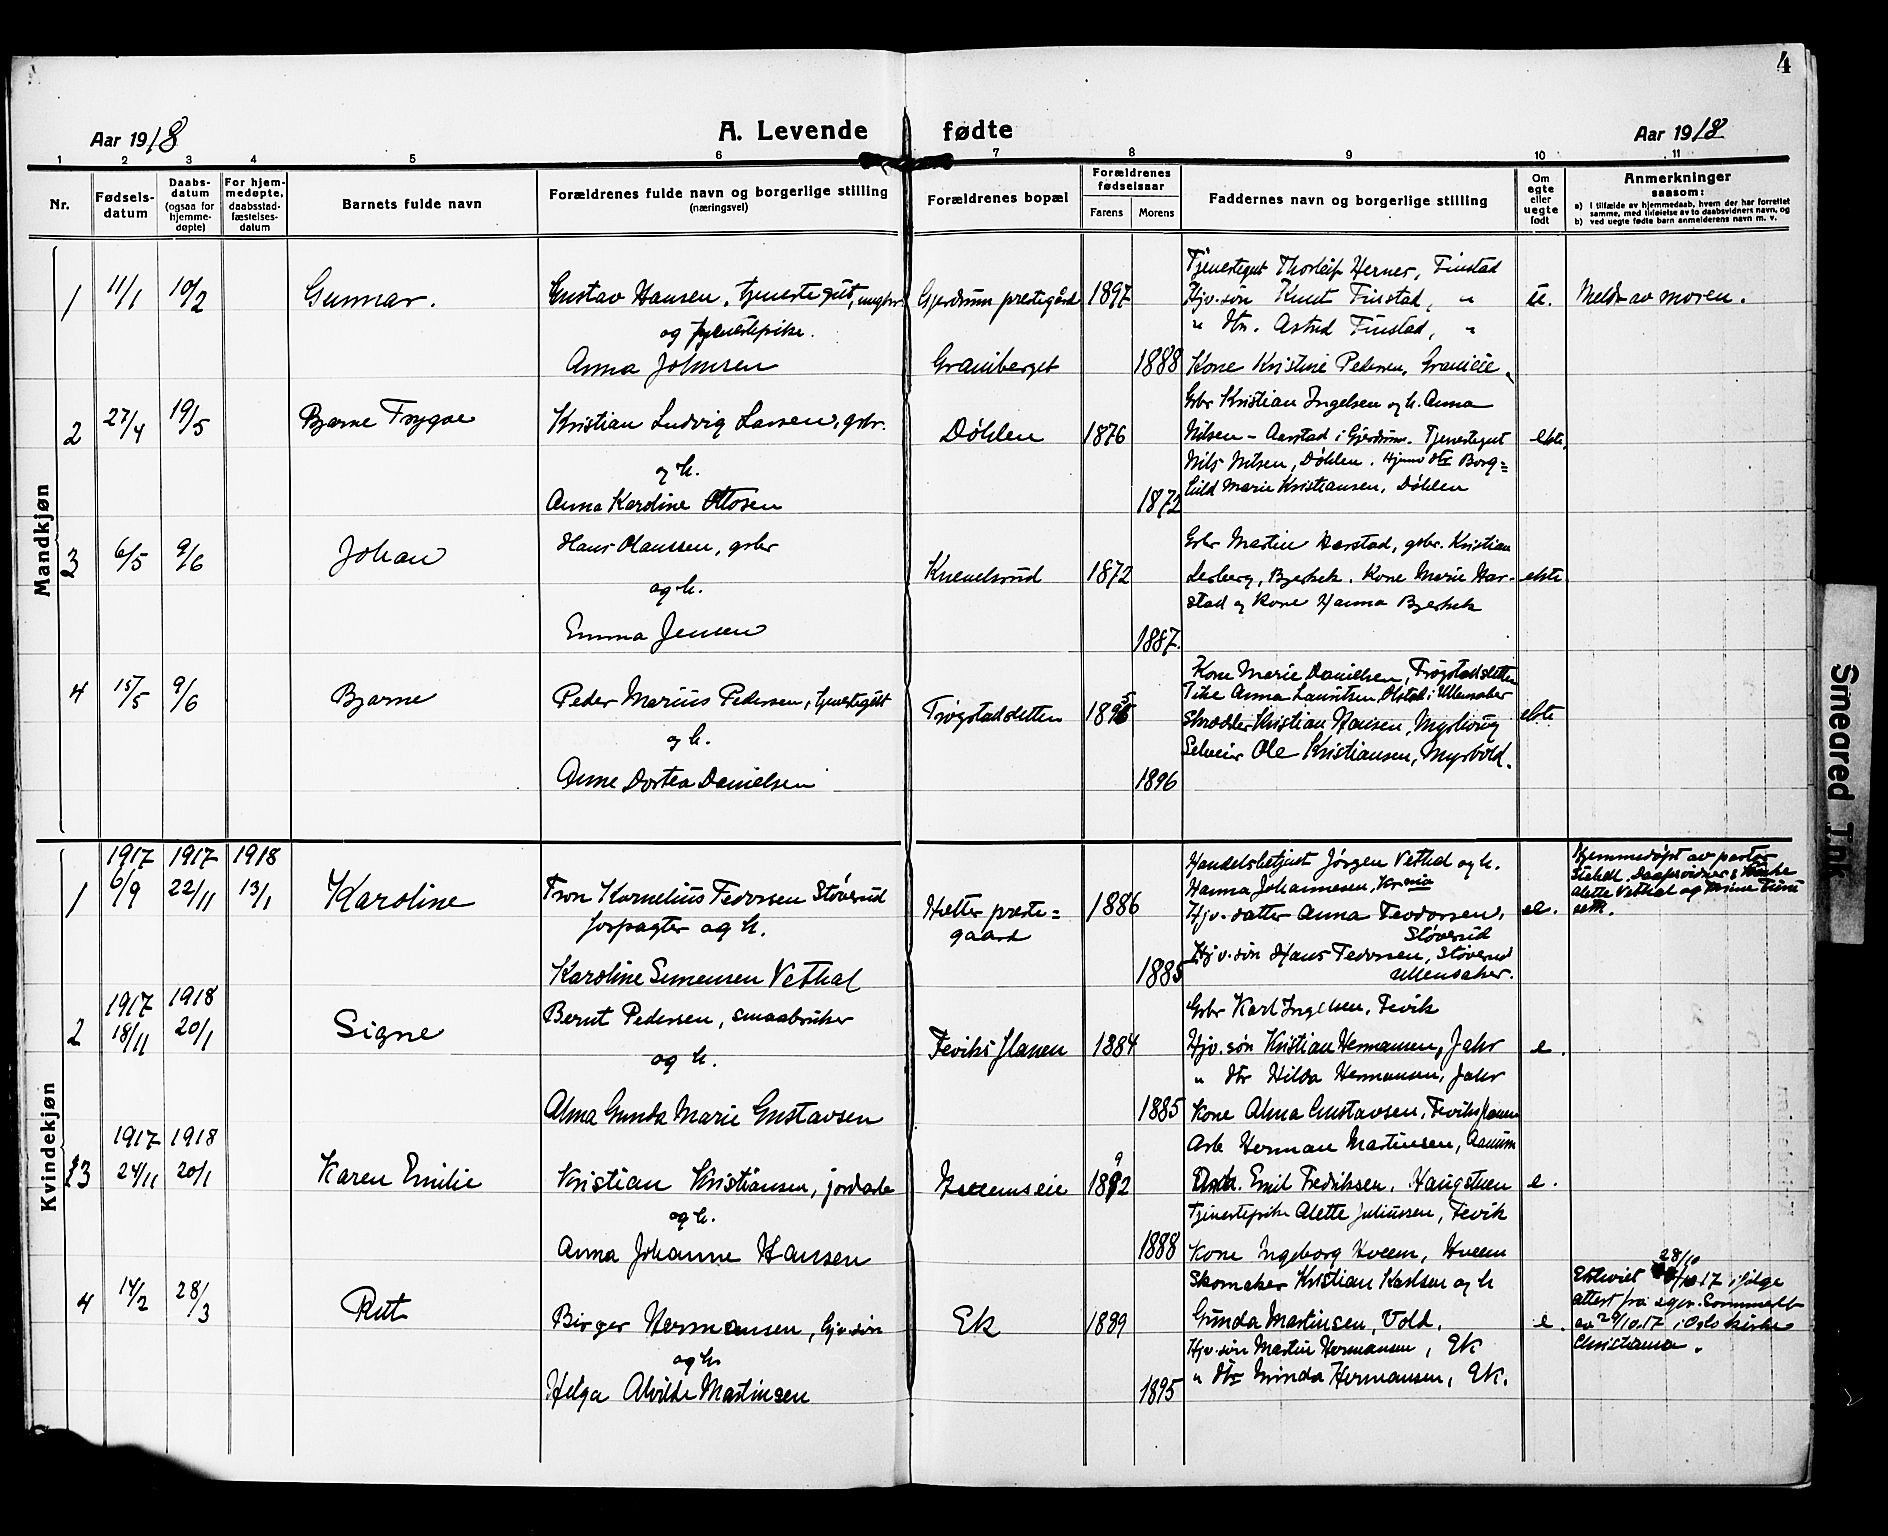 4
Aar 1918
A. Levende fødte
Aar 1918
1 2 3 4 5 6 7 8 9 10 11
Nr.
Fødsels-
datum
Daabs-
datum
(ogsaa for
hjemme-
døpte)
For hjem-
medøpte,
daabsstad-
fæstelses-
datum
Barnets fulde navn
Forældrenes fulde navn og borgerlige stilling
(næringsvei)
Forældrenes bopæl
Forældrenes
fødselsaar
Farens Morens
Faddernes navn og borgerlige stilling
Om
egte
eller
uegte
født
Anmerkninger
saasom:
a) i tilfælde av hjemmedaab, hvem der har forrettet
samme, med tilføielse av to daabsvidners navn, og
b) ved uegte fødte barn anmelderens navn m. v.
Mandkjøn
1 11/1 10/2 Gunnar.
Gustav Hansen, tjenestegut, ungkar
og tjenestepike.
Anna Johnsen
Gjerdrum prestegård
Graniberget
1897
1888
Tjenestegut Thorleif Herner, Finstad
Hjv. søn Knut Finstad, "
" dtr. Astrid Finstad, "
Kone Kristine Pedersen,
u.
Meldt av moren.
2 27/4 19/5 Bjarne Trygve
Kristian Ludvig Larsen, gbr.
og h.
Anna Karoline Ottosen
Døhlen
1876
1872
Gbr Kristian Ingelsen og h. Anna
Nilsen - Aarstad i Gjerdrum. Tjenestegut
Nils Nilsen, Døhlen. Hjemv dtr Borg=
hild Marie Kristiansen, Døhlen
ekte
3 6/5 9/6 Johan
Hans Olaussen, gbr
og h.
Emma Jensen
Knevelsrud
1872
1887.
Gbr Martin Harstad, gbr. Kristian
Lerberg, Bjerkek. Kone Marie Har-
stad og Kone Hanna Bjerkek
ekte
4 15/5 9/6 Bjarne
Peder Marius Pedersen, tjenestegutt
og h.
Anne Dortea Danielsen
Trøgstadsletten
1895
1896
Kone Marie Danielsen, Trøgstadsletten
Pike Anna Lauritsen, Olstad i Ullensaker
Skrædder Kristian Hansen,
Selveier Ole Kristiansen, Myrvold.
ekte
Kvindekjøn
1 1917 6/9 1917 22/11 1918 13/1 Karoline
Tron Kornelius Tedorsen Støverud
forpagter og h.
Karoline Simensen Vethal
Hetter preste=
gaard
1886
1885
Handelsbetjent Jørgen Vethal og h.
Hanna Johannesen, Krnia
Hjv. datter Anna Teodorsen,
Støverud
Hjv. søn Hans Tedorsen, Støverud
Ullensaker.
e.
Hjemmedøpt av pastor
Daapsvidner:
Alette Vethal og
2 1917 18/11 1918 20/1 Signe
Bernt Pedersen, smaabruker
og h.
Alma Gunda Marie Gustavsen
Feviksflauen
1884
1885
Gbr Karl Ingelsen, Fevik
Hjv. søn Kristian Hermansen, Jahr
" dtr Hilda Hermansen, Jahr
Kone Alma Gustavsen, Feviksflauen
e.
3 1917 24/11 1918 20/1 Karen Emilie
Kristian Kristiansen, jordarb
og h.
Anna Johanne Hansen
Hveemseie
1892
1888
Arb Herman Martinsen, Aanum
Emil Fredriksen, Haugstuen
Tjenestepike Alette Juliussen, Fevik
Kone Ingeborg Hveem, Hveem
e.
4 14/2 28/3 Rut
Birger Hermansen, hjv. søn
og h.
Helga Alvilde Martinsen
Ek
1889
1895
Skomaker Kristian Karlsen og h
Gunda Martinsen, Vold.
Hjv. søn Martin Hermansen, Ek
" dtr Minda Hermansen, Ek.
e.
28/10
Ekteviet 17 ifølge
attest fra sgpr.
av 29/10.17 i Oslo kirke
Christiania.
Smeared Ink